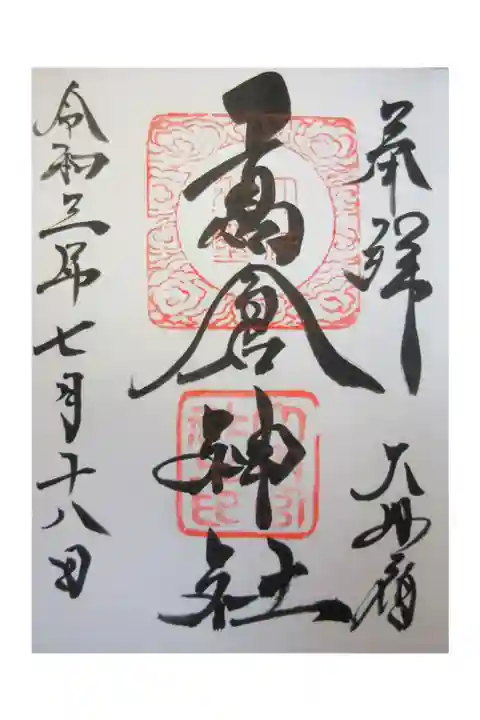 奉拝
大内宿
高倉神社
令和三年七月十八日